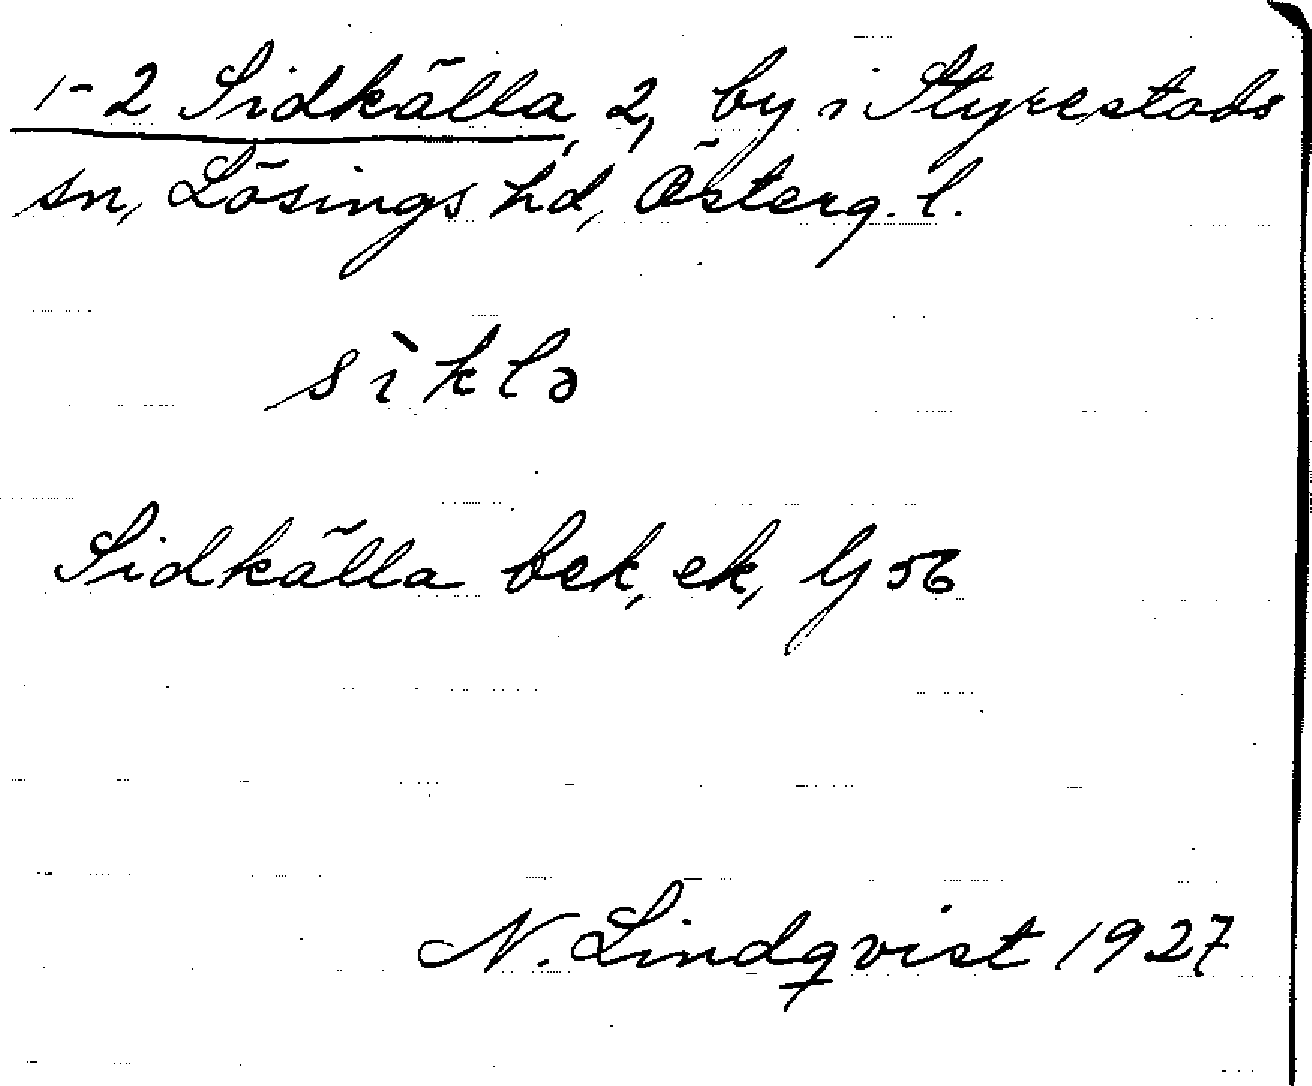 1-2 Sidkälla, 2, by i Styrestads
sn, Lösings hd, Österg. l.
sìklə
Sidkälla bek, ek, Gj 56
N. Lindqvist 1927